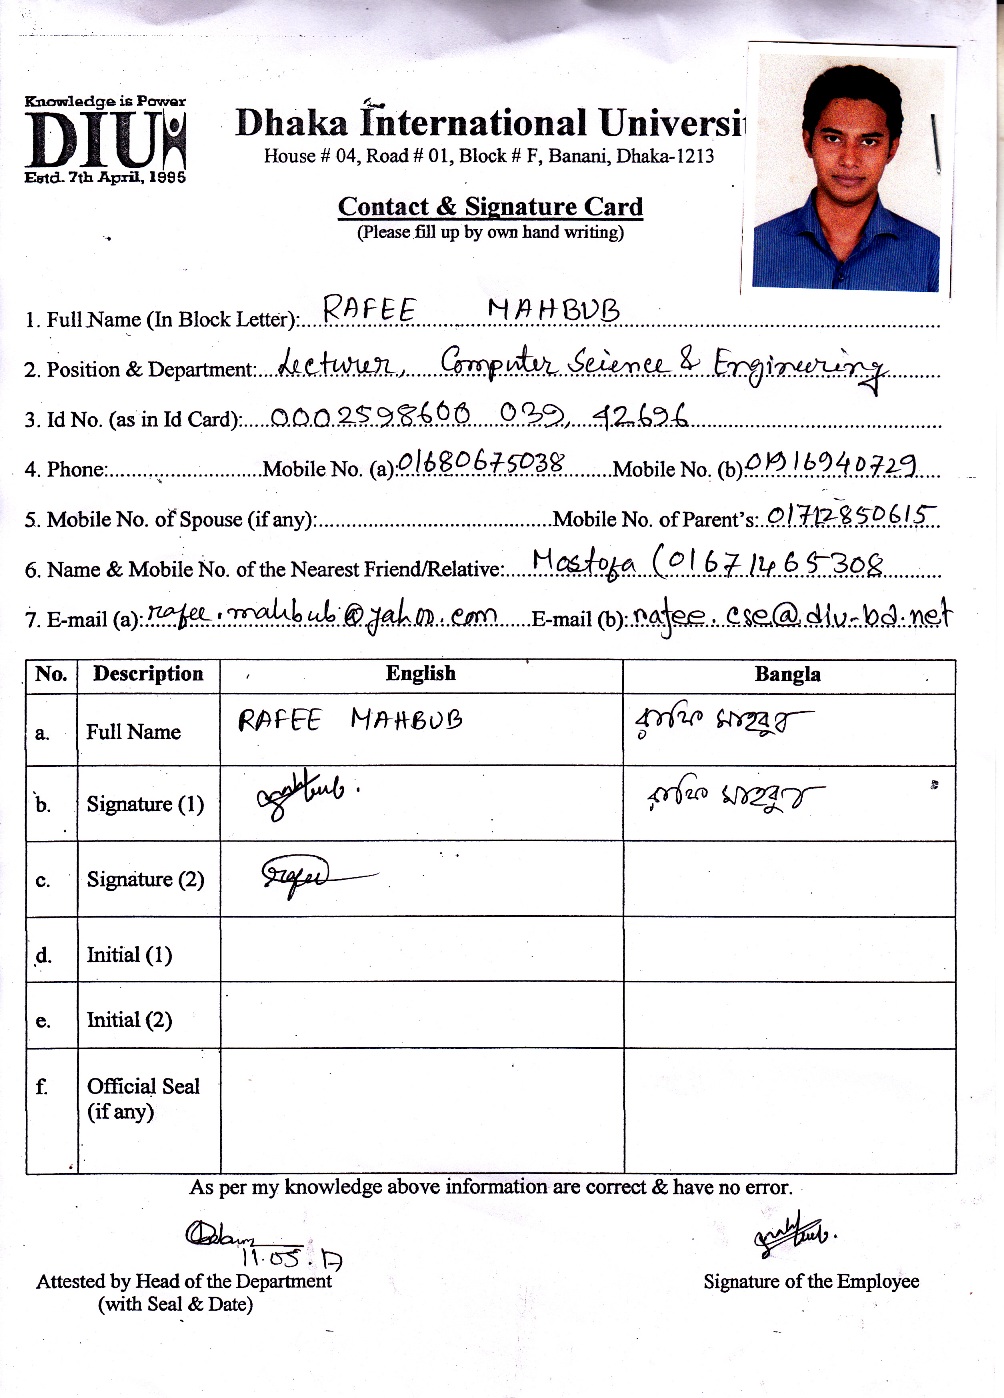 Knowledge is Power
DIU
Estd. 7th April, 1995
Dhaka International Universi
House # 04, Road # 01, Block # F, Banani, Dhaka-1213
Contact & Signature Card
(Please fill up by own hand writing)
1. Full Name (In Block Letter): RAFEE MAHBUB
2. Position & Department: Lecturer, Computer Science & Engineering
3. Id No. (as in Id Card): 0002598600 039, 42696
4. Phone: Mobile No. (a): 01680675038 Mobile No. (b) 01916940729
5. Mobile No. of Spouse (if any): Mobile No. of Parent's: 01712850615
6. Name & Mobile No. of the Nearest Friend/Relative: Mostofa (01671465308
7. E-mail (a): rafee.mahbub@yahoo.com E-mail (b): rafee.cse@diu-bd.net
No. Description English Bangla
a. Full Name RAFEE MAHBUB রাফি মাহবুব
b. Signature (1) রাফি মাহবুব
c. Signature (2)
d. Initial (1)
e. Initial (2)
f. Official Seal
(if any)
As per my knowledge above information are correct & have no error.
11.05.17
Attested by Head of the Department Signature of the Employee
(with Seal & Date)